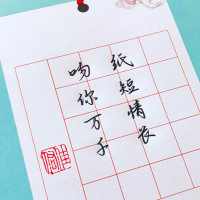 纸短情长
吻你万千